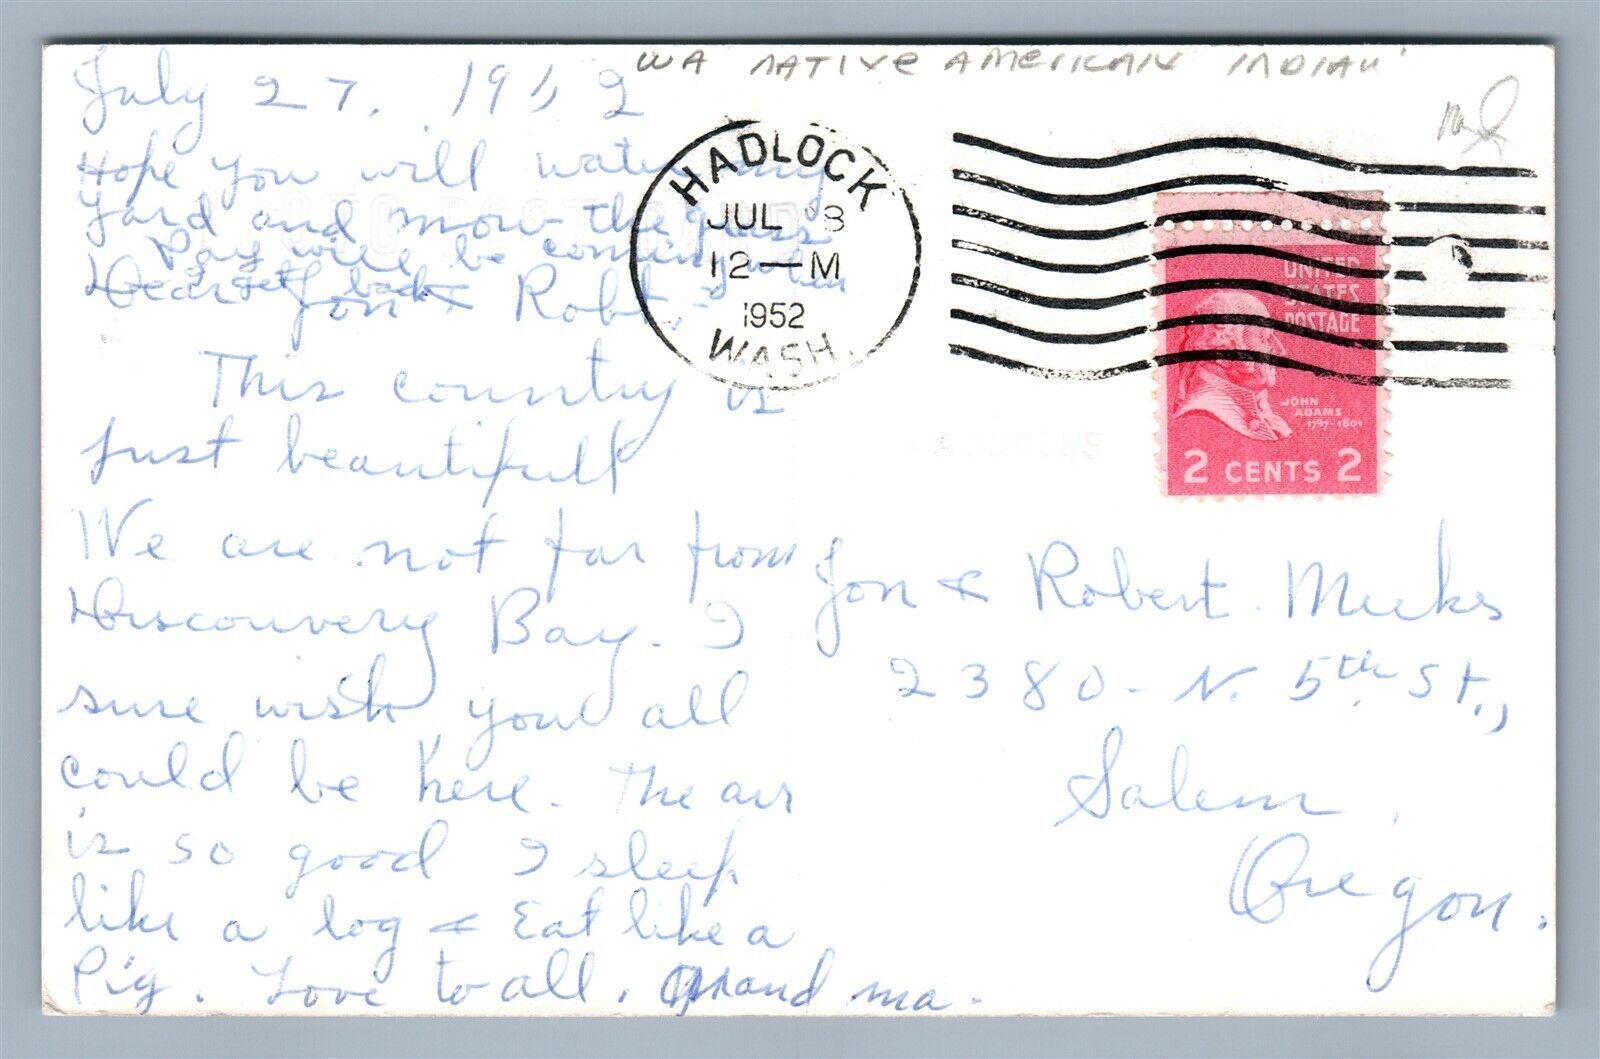 WA NATIVE AMERICAN INDIAN
July 27, 1952
Hope you will water my
yard and mow the grass
Pay will be coming when
I get back
Dear Jon & Robt,-
This country is
just beautifull
We are not far from
Discouvery Bay. I
sure wish you all
could be here. The air
is so good I sleep
like a log & Eat like a
Pig. Love to all, Grand ma.
HADLOCK
JUL 8
12—M
1952
WASH.
UNITED
STATES
POSTAGE
JOHN
ADAMS
1797-1801
2 CENTS 2
Jon & Robert Meeks
2380 - N. 5th St.,
Salem,
Oregon.